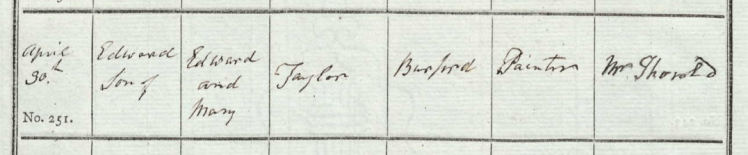 April
30.th
No. 251.
Edward
Son of
Edward
and
Mary
Taylor
Burford
Painter
Mr. Thorold